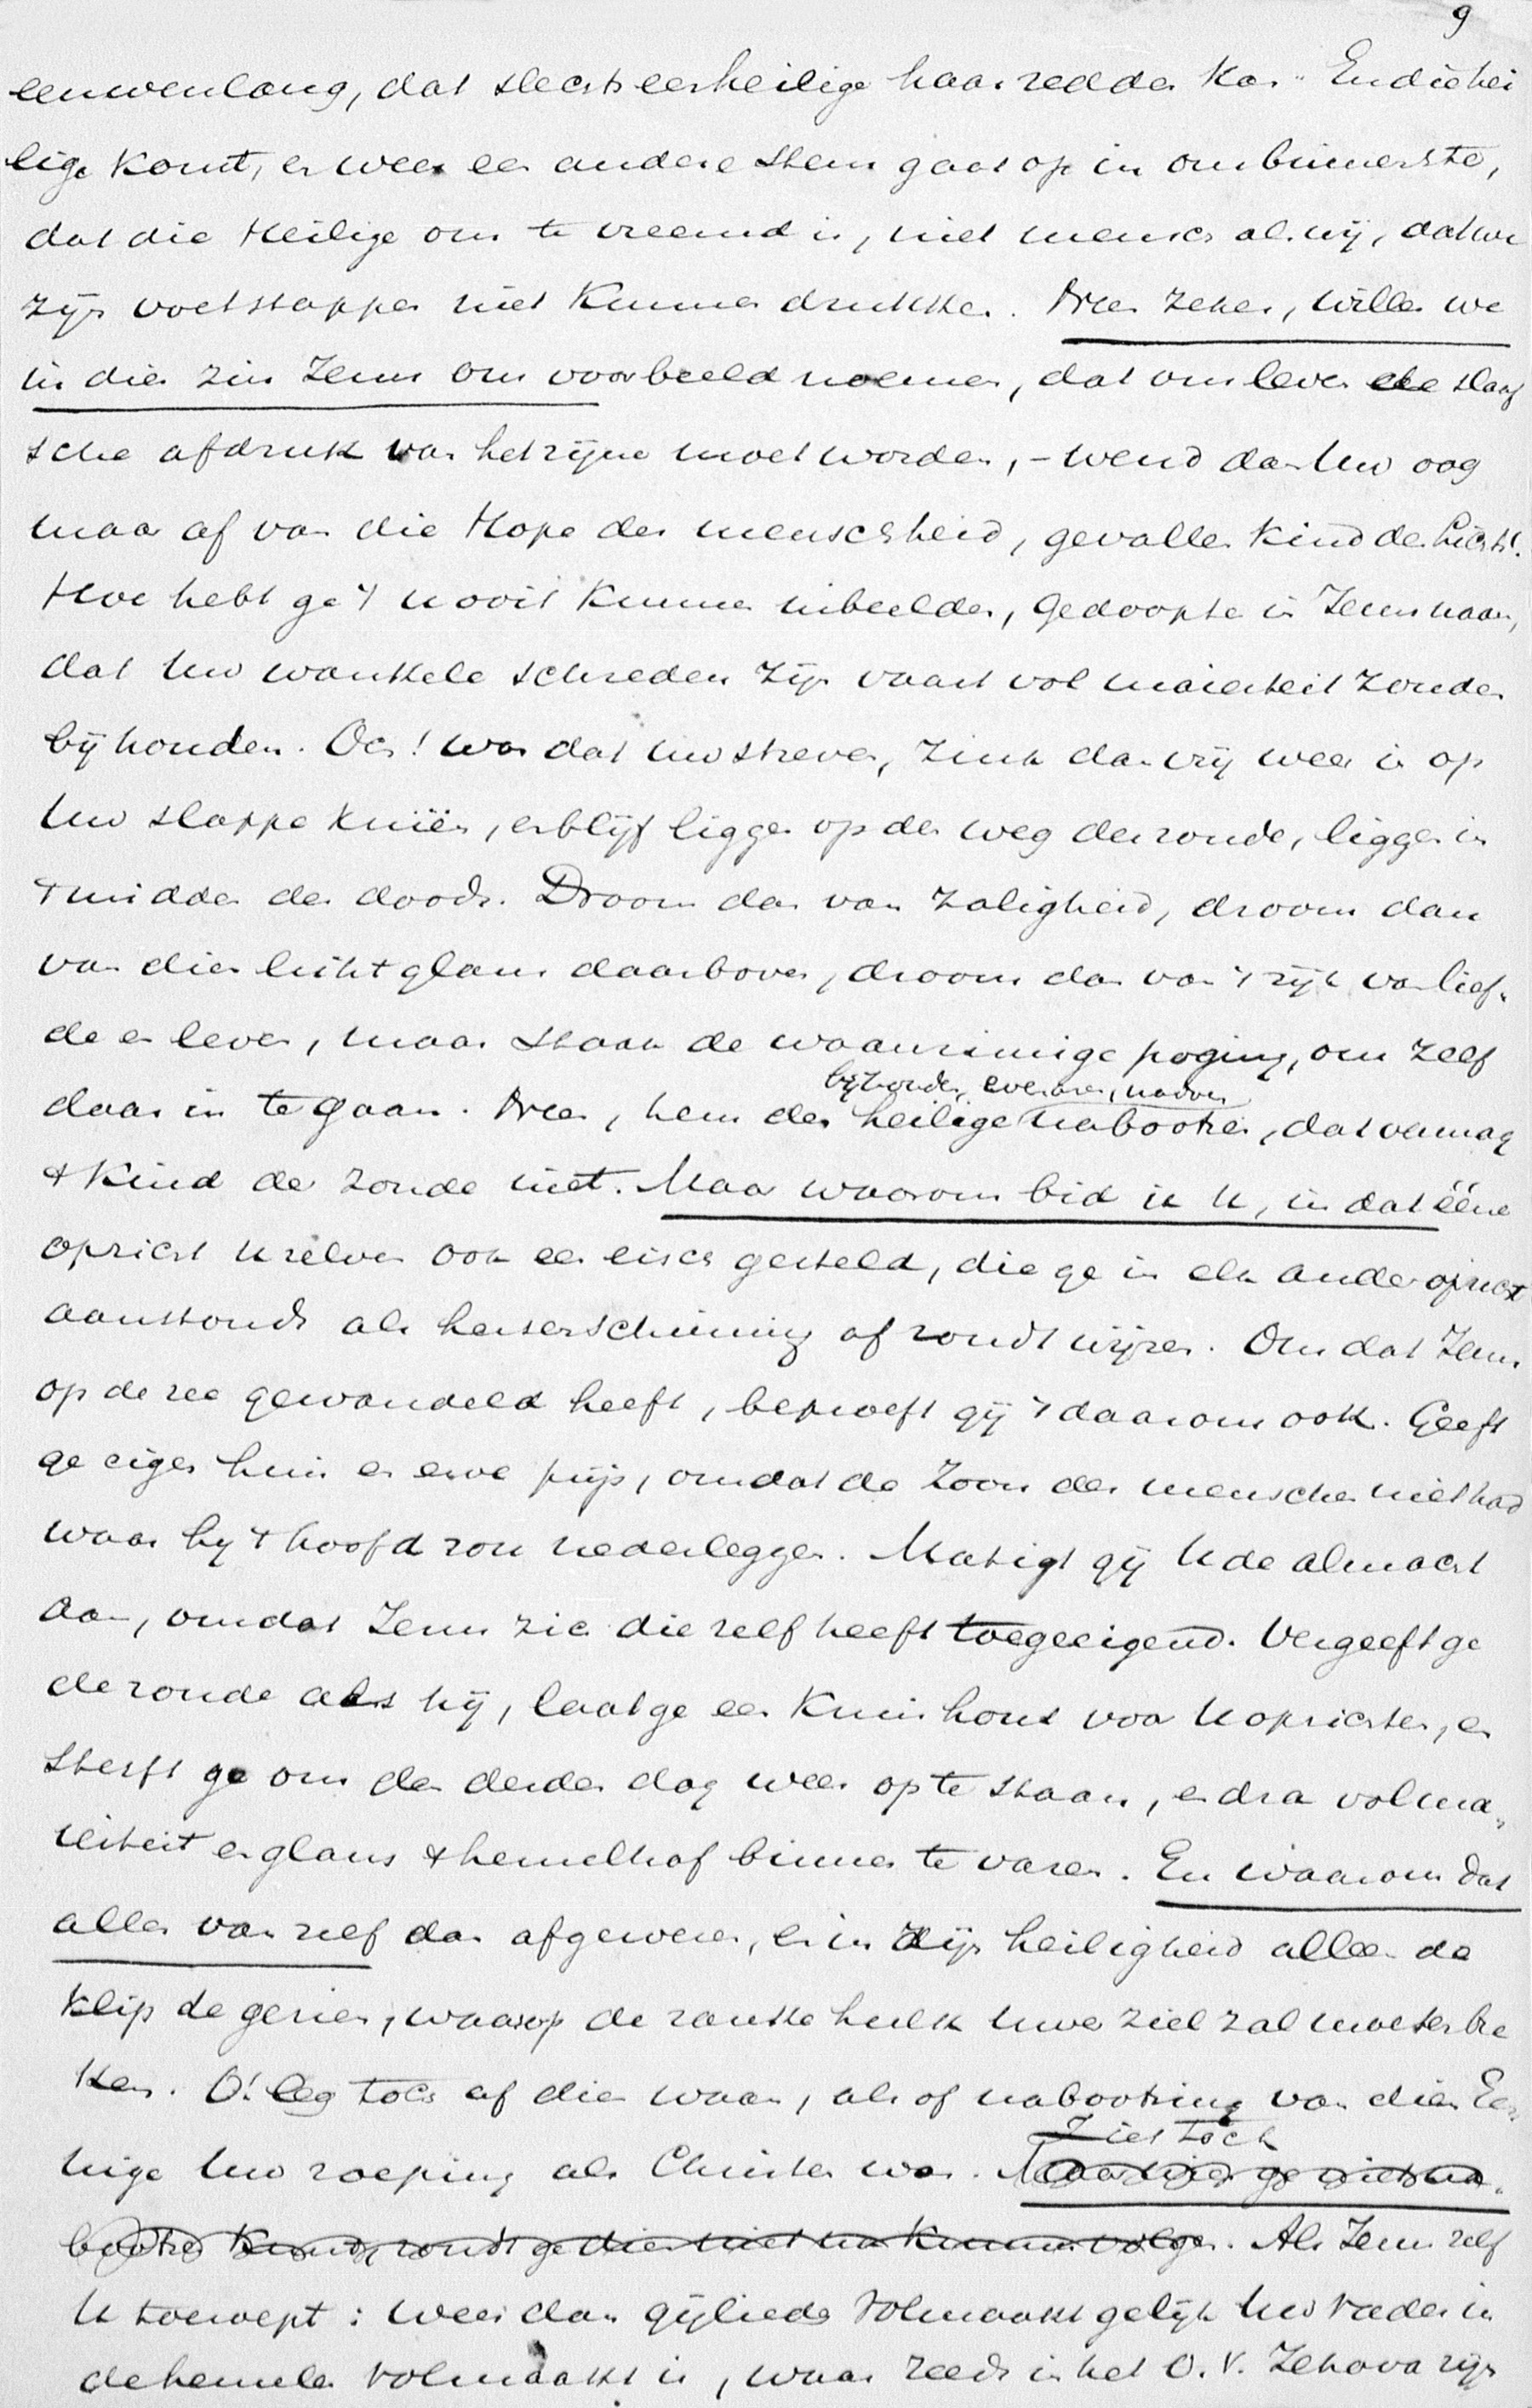 9
eeuwenlang, dat slechts een heilige haar redden kan. En die hei
lige komt, en weer een andere stem gaat op in ons binnenste,
dat die Heilige ons te vreemd is, niet mensch als wij, dat we
zijn voetstappen niet kunnen drukken. Neen zeker, willen we
in dien zin Jezus ons voorbeeld noemen, dat ons leven de slaaf
sche afdruk van het zijne moet worden, - wend dan Uw oog
maar af van die Hope der menschheid, gevallen kind des lichts!.
Hoe hebt ge 't nooit kunnen inbeelden, Gedoopte in Jezus naam,
dat Uw wankele schreden zijn vaart vol majesteit zouden
bijhouden. Och! was dat uw streven, zink dan vrij weer in op
Uw slappe knieën, en blijf liggen op den weg der zonde, liggen in
't midden des doods. Droom dan van zaligheid, droom dan
van dien lichtglans daarboven, droom dan van 't rijk van lief-
de en leven, maar staak de waanzinnige poging, om zelf
daar in te gaan. Neen, hem den heilige nabootsen, dat vermag
bijhouden, evenaren,
't kind der zonde niet. Maar waarom bid ik U, in dat ééne
opzicht U zelven ook een eisch gesteld, die ge in elk ander opzicht
aanstonds als hersenschimmig af zoudt wijzen. Omdat Jezus
op de zee gewandeld heeft, beproeft gij 't daarom ook. Geeft
ge eigen huis en erve prijs, omdat de Zoon des menschen niet had
waar hij 't hoofd zou nederleggen. Matigt gij U de almacht
aan, omdat Jezus zich die zelf heeft toegeeigend. Vergeeft ge
de zonde als hij, laat ge een kruishout voor U oprichten, en
sterft ge om den derden dag weer op te staan, en dra vol ma-
jesteit en glans 't hemelhof binnen te varen. En waarom dat
alles van zelf dan afgewezen, en in zijn heiligheid alleen de
klip gezien, waarop de ranke hulk uwer ziel zal moeten bre
ken. O! leg toch af dien waan, als of nabootsing van dien Ee-
nige Uw roeping als Christen was. Maar wien ge niet na-
Ziet toch
bootsen kunt, zoudt ge dien niet na kunnen volgen. Als Jezus zelf
U toeroept: Wees dan gijlieden volmaakt gelijk Uw Vader in
de hemelen volmaakt is, waar reeds in het O.V. Jehova zijn